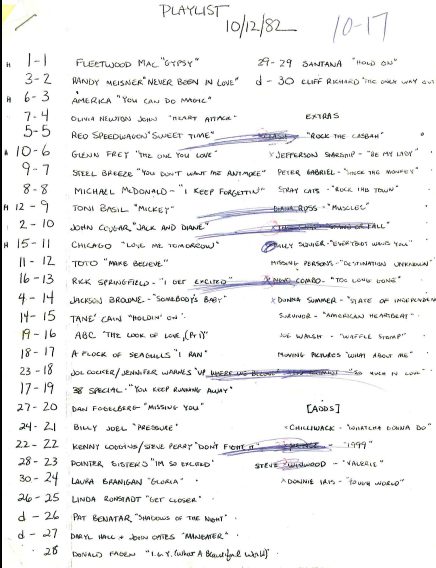 PLAYLIST
10/12/82
10-17
H 1-1 FLEETWOOD MAC "GYPSY"
3-2 RANDY MEISNER "NEVER BEEN IN LOVE"
H 6-3 AMERICA "YOU CAN DO MAGIC"
7-4 OLIVIA NEWTON JOHN "HEART ATTACK"
5-5 REO SPEEDWAGON "SWEET TIME"
10-6 GLENN FREY "THE ONE YOU LOVE"
9-7 STEEL BREEZE "YOU DON'T WANT ME ANYMORE"
8-8 MICHAEL McDONALD - "I KEEP FORGETTIN'"
H 12-9 TONI BASIL "MICKEY"
2-10 JOHN COUGAR "JACK AND DIANE"
H 15-11 CHICAGO "LOVE ME TOMORROW"
11-12 TOTO "MAKE BELIEVE"
16-13 RICK SPRINGFIELD - "I GET EXCITED"
4-14 JACKSON BROWNE - "SOMEBODY'S BABY"
14-15 TANE' CAIN "HOLDIN' ON"
19-16 ABC "THE LOOK OF LOVE (Pt 1)"
18-17 A FLOCK OF SEAGULLS "I RAN"
23-18 JOE COCKER/JENNIFER WARNES "UP WHERE WE BELONG"
17-19 38 SPECIAL "YOU KEEP RUNNING AWAY"
27-20 DAN FOGELBERG - "MISSING YOU"
24-21 BILLY JOEL "PRESSURE"
22-22 KENNY LOGGINS/STEVE PERRY "DON'T FIGHT IT"
28-23 POINTER SISTERS "I'M SO EXCITED"
30-24 LAURA BRANIGAN "GLORIA"
26-25 LINDA RONSTADT "GET CLOSER"
d-26 PAT BENATAR "SHADOWS OF THE NIGHT"
d-27 DARYL HALL + JOHN OATES "MANEATER"
28 DONALD FAGEN "I.G.Y. (What A Beautiful World)"
29-29 SANTANA "HOLD ON"
d-30 CLIFF RICHARD "THE ONLY WAY OUT
EXTRAS
"ROCK THE CASBAH"
x JEFFERSON STARSHIP - "BE MY LADY"
PETER GABRIEL - "SHOCK THE MONKEY"
STRAY CATS - "ROCK THIS TOWN"
DIANA ROSS - "MUSCLES"
OF FALL"
BILLY SQUIER - "EVERYBODY WANTS YOU"
MISSING PERSONS - "DESTINATION UNKNOWN"
COMBO - "TOO LONG GONE"
x DONNA SUMMER - "STATE OF INDEPENDEN
SURVIVOR - "AMERICAN HEARTBEAT"
JOE WALSH - "WAFFLE STOMP"
MOVING PICTURES "WHAT ABOUT ME"
"SO MUCH IN LOVE"
[ADDS]
x CHILLIWACK - "WHATCHA GONNA DO"
"1999"
STEVE WINWOOD - "VALERIE"
x DONNIE IRIS - "TOUGH WORLD"